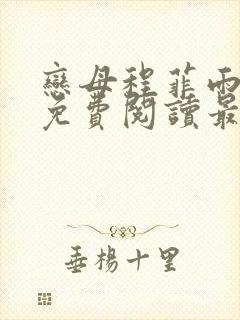 戀母程菲雨
免費閱讀最
垂楊十里